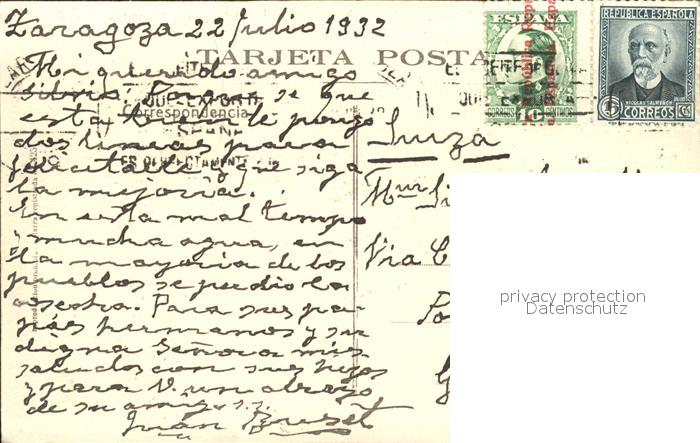 Zaragoza 22 Julio 1932
TARJETA POSTAL
Mi querido amigo
Silvio. Porque se que
Correspondencia
esta Vd. le pongo
dos lineas para
felicitarle y que siga
la mejoria.
En esta mal tiempo
y mucha agua, en
la mayoria de los
pueblos se perdio la
cosecha. Para sus pa-
pás hermanos y su
digna Señora mis
saludos con sus hijos
y para V. un abrazo
de su amigo s.s.
Juan Bruset
ESPAÑA
República Española
CORREOS
REPUBLICA ESPAÑOLA
NICOLAS SALMERON
15 CORREOS Cts
Suiza
Via C
privacy protection
Datenschutz